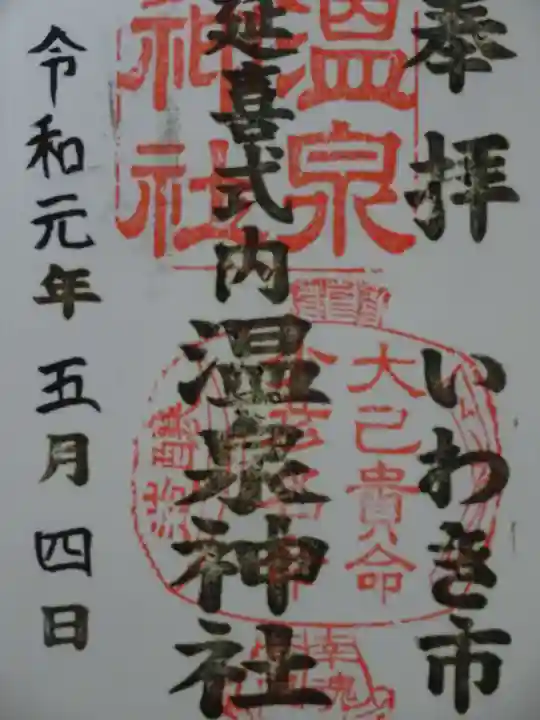 奉拝 いわき市
延喜式内温泉神社
令和元年五月四日
温泉
神社
大己貴命